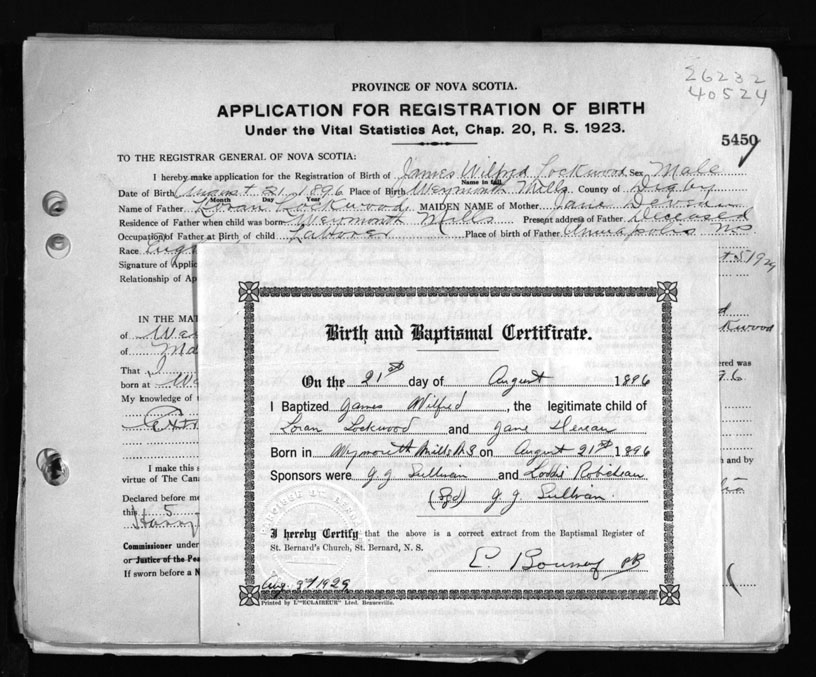 26232
40524
PROVINCE OF NOVA SCOTIA.
APPLICATION FOR REGISTRATION OF BIRTH
Under the Vital Statistics Act, Chap. 20, R. S. 1923.
5450
TO THE REGISTRAR GENERAL OF NOVA SCOTIA:
I hereby make application for the Registration of Birth of James Wilfred Lockwood Sex Male
Name in full
Date of Birth August 21 1896 Place of Birth Weymouth Mills County of Digby
Month Day Year
Name of Father Loran Lockwood MAIDEN NAME of Mother Jane
Residence of Father when child was born Weymouth Mills Present address of Father Deceased
Occupation of Father at Birth of child Labourer Place of birth of Father Annapolis NS
Race
Signature of Applic
Relationship of Ap
IN THE MAT
of
of
That I
born at
ered was
My knowledge of
I make this s
virtue of The Cana
and by
Declared before me
this 5
Commissioner under
or Justice of the Pea
If sworn before a N
Birth and Baptismal Certificate.
On the 21st day of August 1896
I Baptized James Wilfred, the legitimate child of
Loran Lockwood and Jane
Born in Wymouth Mills N S on August 21st 1896
Sponsors were J. J. Sullivan and
(Sgd) J. J. Sullivan
I hereby Certify that the above is a correct extract from the Baptismal Register of
St. Bernard's Church, St. Bernard, N. S.
Aug. 3rd 1929
Printed by L'"ECLAIREUR" Lted, Beauceville.